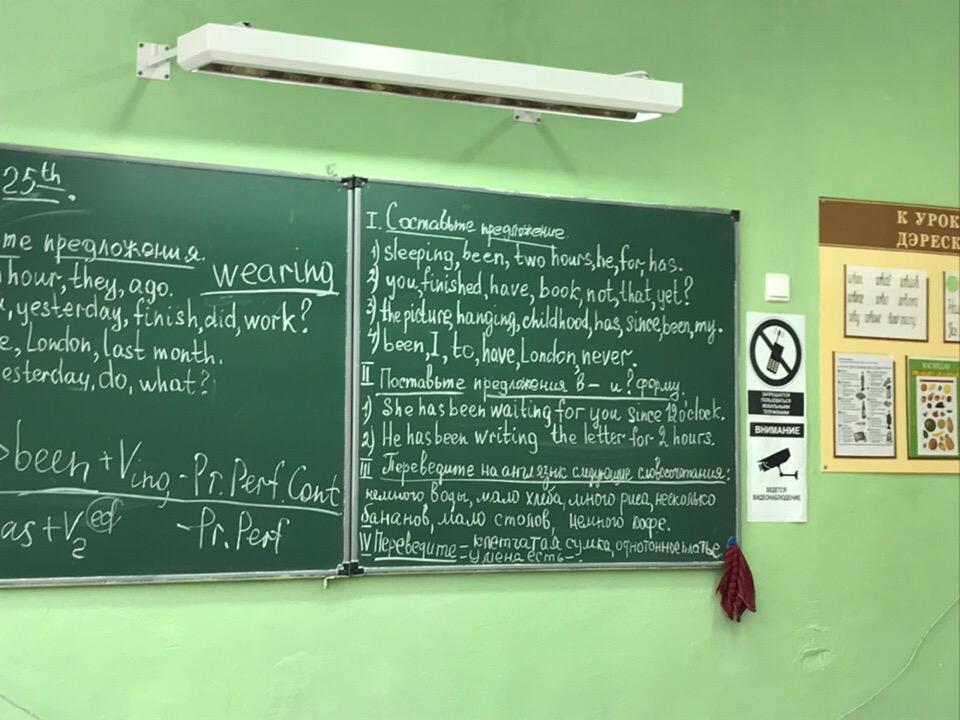 25th.
те предложения.
wearing
hour, they, ago.
, yesterday, finish, did, work?
e, London, last month.
esterday, do, what?
been + Ving - Pr. Perf. Cont
as + V2 ed - Pr. Perf
I. Составьте предложение.
1) sleeping, been, two hours, he, for, has.
2) you, finished, have, book, not, that, yet?
3) the picture, hanging, childhood, has, since, been, my.
4) been, I, to, have, London, never.
II Поставьте предложения в – и ? форму.
1) She has been waiting for you since 12 o'clock.
2) He has been writing the letter for 2 hours.
III Переведите на англ язык следующие словосочетания:
немного воды, мало хлеба, много риса, несколько
бананов, мало столов, немного кофе.
IV Переведите – клетчатая сумка, однотонное платье
у меня есть –
ЗАПРЕЩАЕТСЯ
ПОЛЬЗОВАТЬСЯ
МОБИЛЬНЫМИ
ТЕЛЕФОНАМИ
ВНИМАНИЕ
ВЕДЕТСЯ
ВИДЕОНАБЛЮДЕНИЕ
К УРОК
ДӘРЕСК
when what which
where who whom
why whose how many